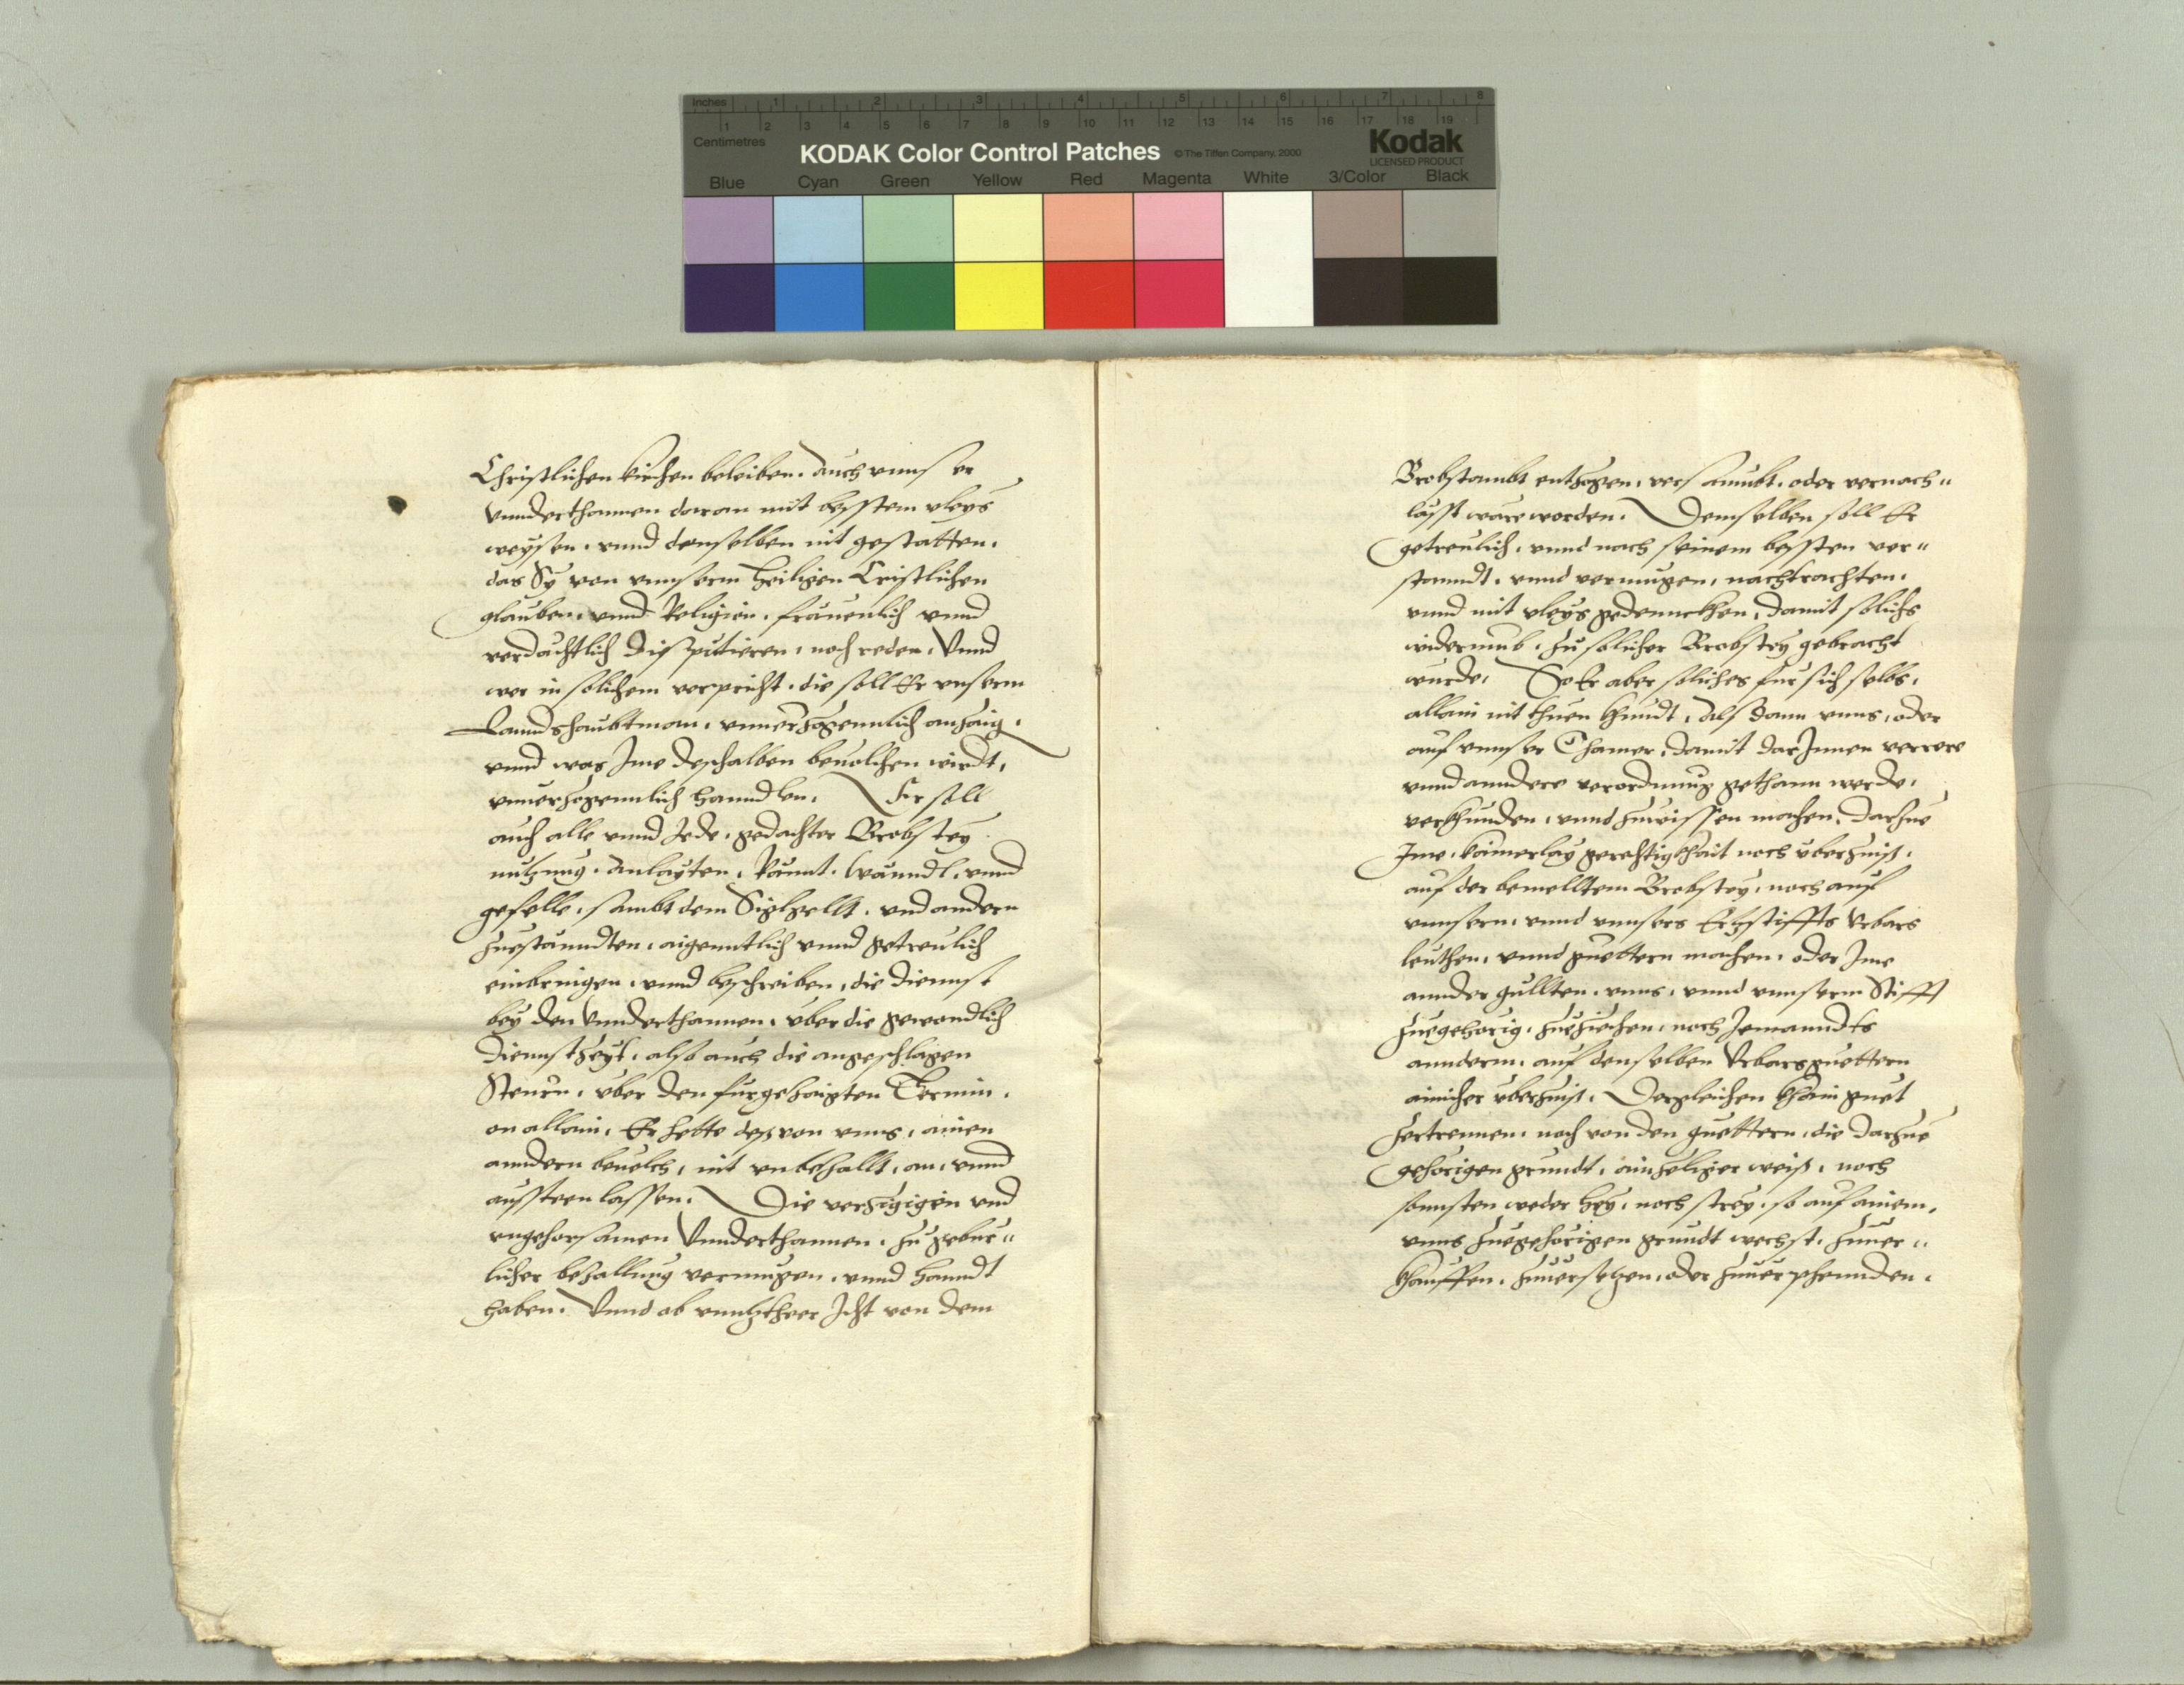 Inches 1 2 3 4 5 6 7 8
1 2 3 4 5 6 7 8 9 10 11 12 13 14 15 16 17 18 19
Centimetres
KODAK Color Control Patches © The Tiffen Company, 2000 Kodak
LICENSED PRODUCT
Blue Cyan Green Yellow Red Magenta White 3/Color Black
Christlichen kirchen beleiben. Auch vnnser
Vnnderthannen daran mit besstem vleys
weysen. vnnd denselben nit gestatten.
das Sy von vnnserm heiligen Cristlichen
glauben. vnnd Religion. frauenlich vnnd
verdächtlich Disputieren, noch reden, Vnnd
wer in solichem verpricht. die soll Er vnserm
Lanndshaubtman. vnnerzogennlich anzaig.
vnnd was Jme deshalben beuolchen wirdt,
vnnerzogennlich hanndlen. Er soll
auch alle vnnd Jede, gedachter Brobstey
nutzung. Anlayten, Rännt. Wänndl. vnnd
gefelle, sambt dem Siglgellt. vnd andern
zuestänndten, aigenntlich vnnd getreulich
einbringen, vnnd beschreiben, die Diennst
bey den Vnnderthannen, über die gewondlich
Diennstzeyt, also auch die angeschlagen
Steurn, über den fürgehaigten Termin.
on allain, Er hette des von vnns, ainen
anndern beuelch, nit vnbezallt, an, vnnd
aussteen lassen. Die verzigigen vnd
vngehorsamen Vnnderthannen. zu gebur„
licher bezallung vermugen, vnnd hanndt
haben. Vnnd ob vnnhtheer Jcht von dem
Brobstambt enthzogen, versaumbt, oder vernach„
lässt wäre worden. Demselben soll Er
getreulich, vnnd nach seinem bessten ver„
stanndt, vnnd vermugen, nachtrachten.
vnnd mit vleys gedennckhen, damit solichs
widerumb, zu solicher Brobstey gebracht
wurde, So Er aber soliches für sich selbs,
allain nit thuen khundt, Als dann vnns, oder
auf vnnser Chamer, damit darJnnen verrere
vnnd anndere verordnung gethann werde,
verkhünden, vnnd zuwissen machen, Darzue
Jme, kainerlay gerechtigkhait noch überzinss.
auf der bemelltem Brobstey, noch auf
vnnsern, vnnd vnnsers Ertzstiffts Vrbars
leüthen, vnnd guettern machen, oder Jme
annder güllten, vnns, vnnd vnnserm Stifft
zuegehörig, zueziechen, noch Jemanndts
annderm, auf denselben Vrbarsguettern
ainicher überzinss, Dergleichen khain guet
zertrennen, noch von den guettern, die Darzue
gehörigen grundt, ainzeliger weiss, noch
sonnsten weder hey, noch strey, so auf ainem,
vnns zuegehörigen grundt wechst, zuuer„
khauffen, zuuersetzen, oder zuuerphennden.